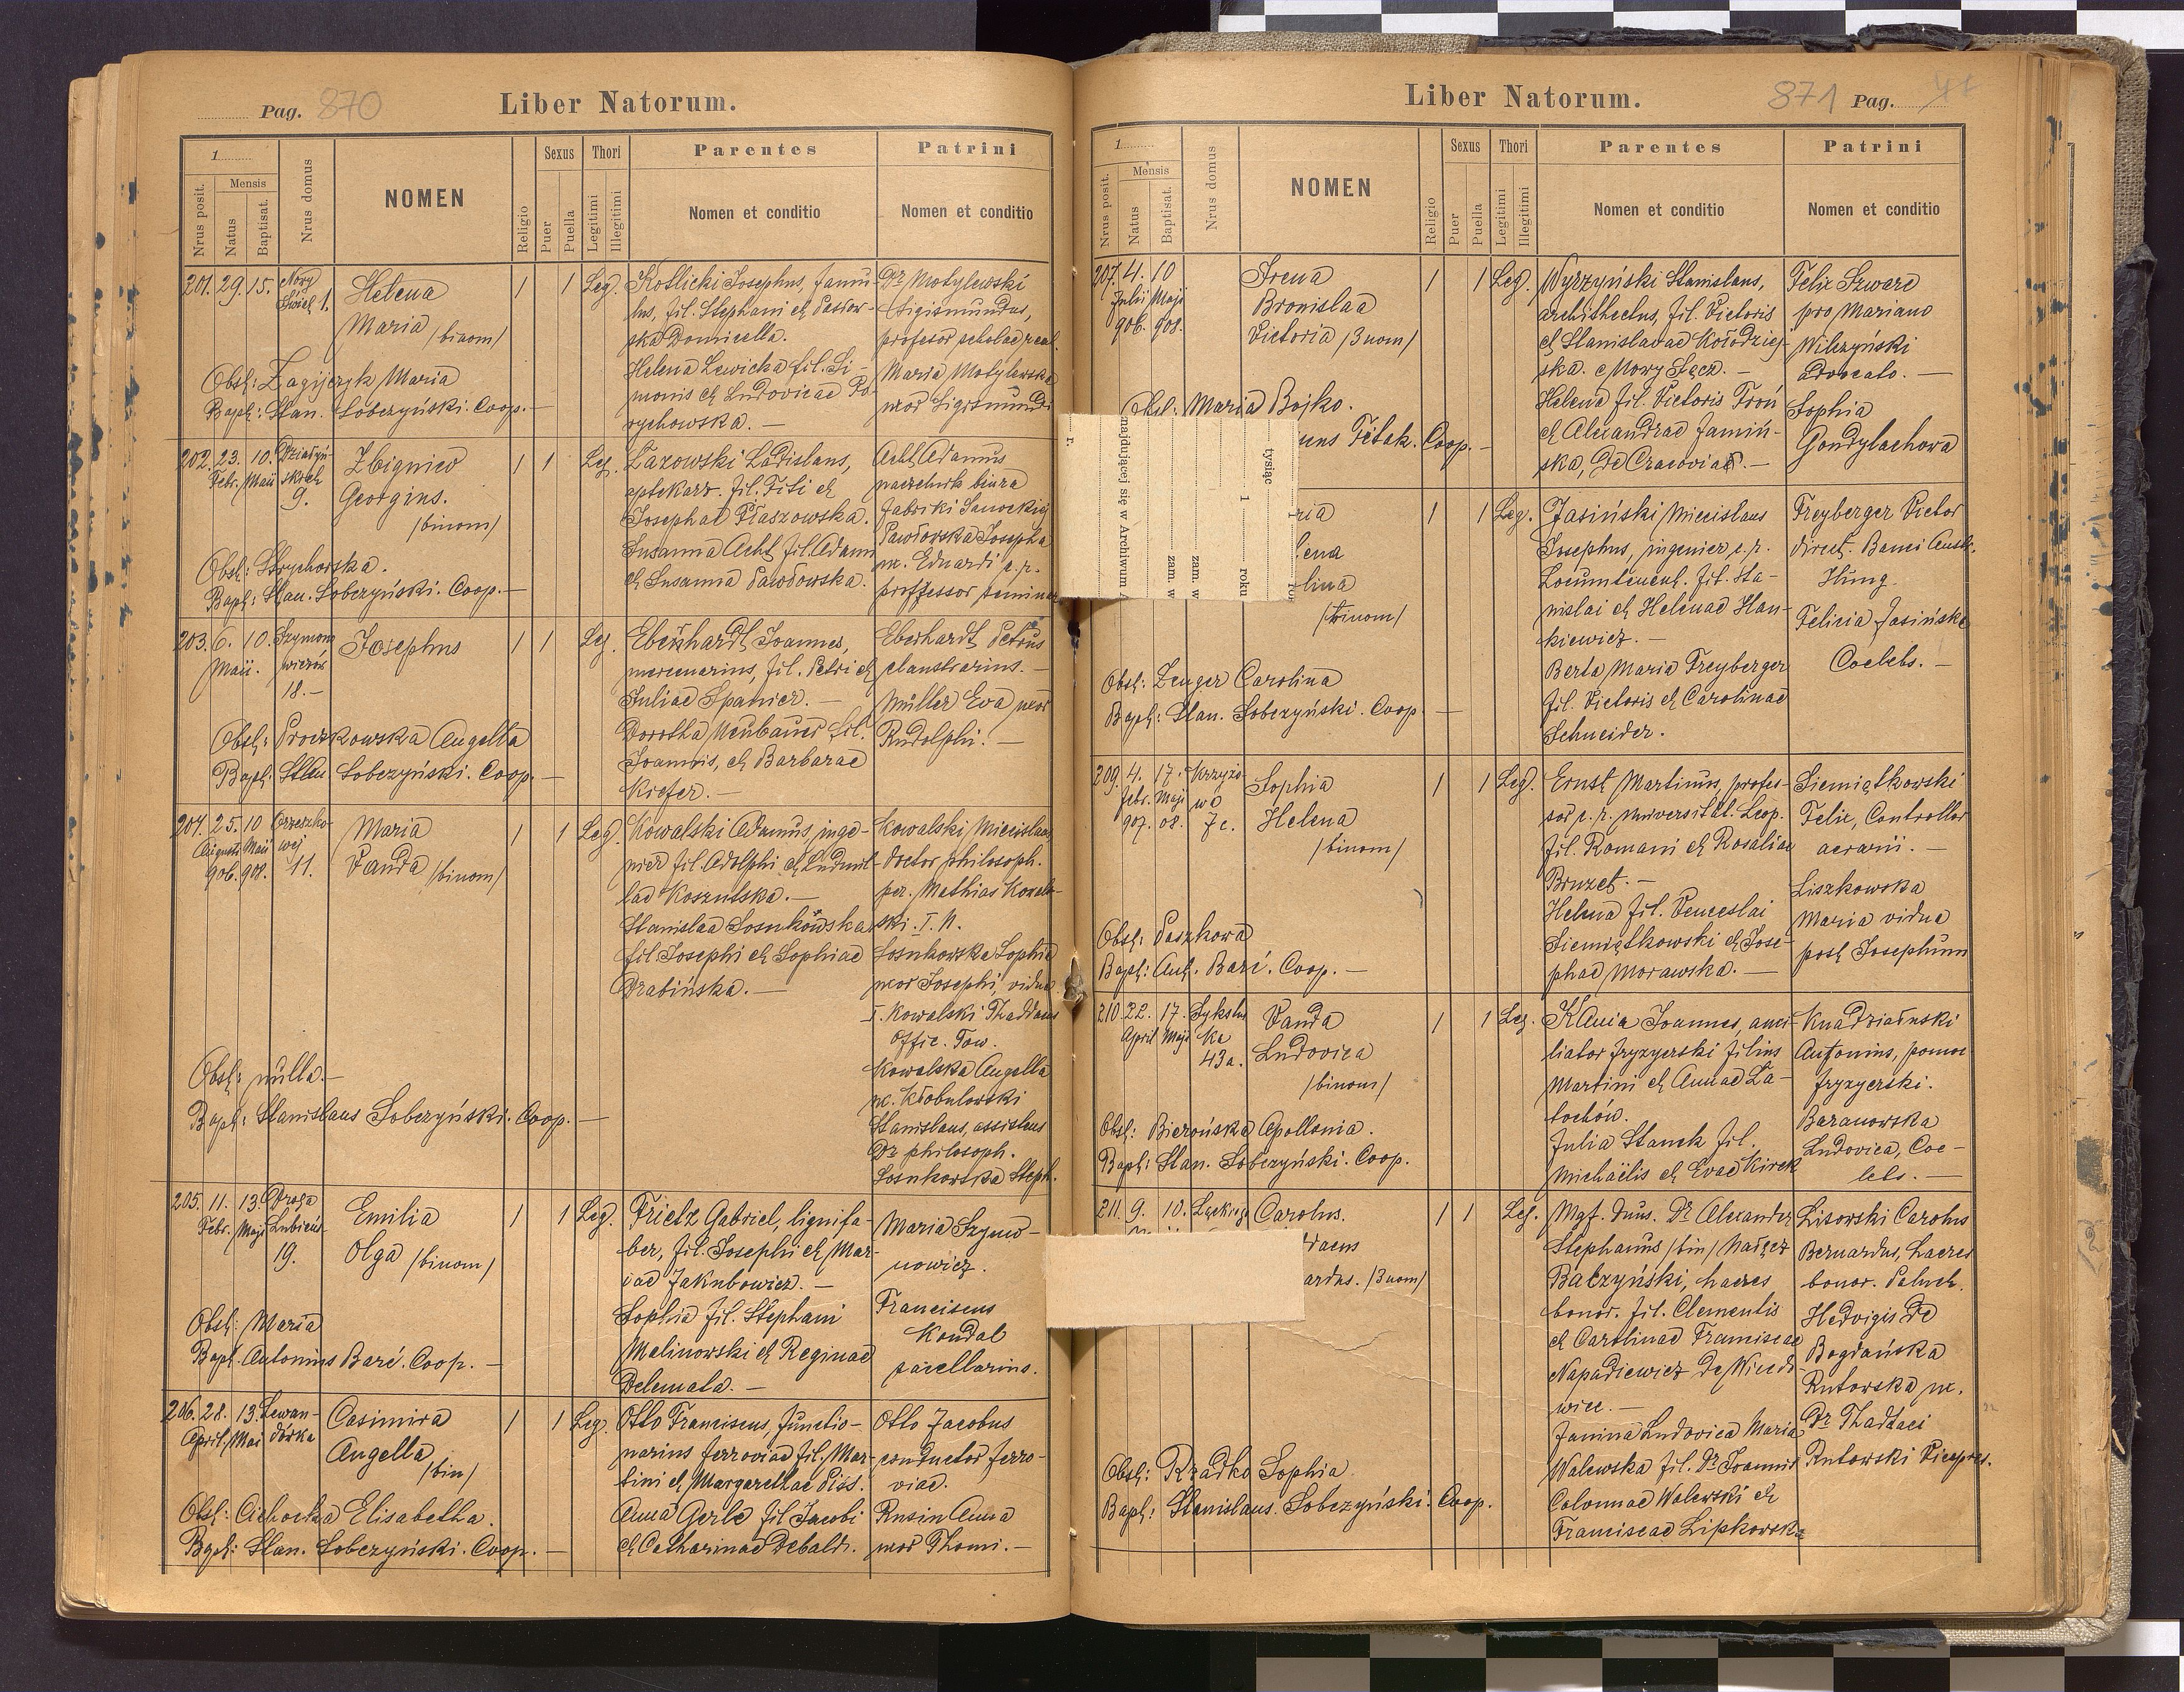 Pag. 870
Liber Natorum.
1
Nrus posit.
Mensis
Natus
Baptisat.
Nrus domus
NOMEN
Religio
Sexus
Puer
Puella
Thori
Legitimi
Illegitimi
Parentes
Nomen et conditio
Patrini
Nomen et conditio
201. 29. 15. Nowy
Świat 1.
Helena
Maria /binom/
1 1 Leg.
Kotlicki Josephus, famu-
lus, fil. Stephani et
ska Domicella.
Helena Lewicka fil. Si-
monis et Ludovicae Po-
rychowska. —
Dr Motylewski
Sigismundus,
profesor scholae real.
Maria Motylewska
uxor Sigismundi
Obst: Zagijczyk Maria
Bapt: Stan. Sobczyński. Coop. —
202. 23. 10.
Febr. Maii
9.
Zbigniew
Georgius.
/binom/
1 1 Leg.
Łazowski Ladislaus,
aptekarz. fil. Titi et
Josephae Płaszowska.
Susanna Acht fil. Adami
et Susanna Pawłowska.
Acht Adamus
naczelnik biura
fabriki Sanockiej
Pawłowska Josepha
ux. Eduardi e.p.
professor seminar
Obst: Strychorska.
Bapt: Stan. Sobczyński. Coop. —
203. 6. 10. Szymono
Maii. wiczów
18. —
Josephus
1 1 Leg.
Eberhardt Joannes,
mercenarius, fil. Petri et
Juliae Spanier. —
Dorothea Neubauer fil.
Joannis, et Barbarae
Kiefer. —
Eberhardt Petrus
claustrarius. —
Müller Eva uxor
Rudolphi. —
Obst: Proczkowska Angella
Bapt: Stan. Sobczyński. Coop. —
204. 25. 10 Orzeszko-
Augusti Maii wej
906. 908. 11.
Maria
Vanda /binom/
1 1 Leg.
Kowalski Adamus, inge-
nier fil. Adolphi et Ludmil-
lae Koszutska. —
Stanislaa Sosnkowska
fil. Josephi et Sophiae
Drabińska. —
Kowalski Miecislaus
doctor philosoph.
per. Mathias Kowal-
ski. I. N.
Sosnkowska Sophia
uxor Josephi, vidua
I. Kowalski Thaddaus
Offic. Tow.
Kowalska Angella
ux. Kłobukowski
Stanislaus, assistens
Dr philosoph.
Sosnkowska Steph.
Obst: nulla. —
Bapt: Stanislaus Sobczyński. Coop. —
205. 11. 13. Droga
Febr. Maji Lubień
19.
Emilia
Olga /binom/
1 1 Leg.
Frietz Gabriel, lignifa-
ber, fil. Josephi et Mar-
iae Jakubowicz. —
Sophia fil. Stephani
Malinowski et Reginae
Delemata. —
Maria Szymo-
nowicz.
Franciscus
Kondal
sacellarius.
Obst: Maria
Bapt. Antonius Baré. Coop. —
206. 28. 13. Lewan-
April. Mai dówka
Casimira
Angella
/bin/
1 1 Leg.
Otto Franciscus, functio-
narius ferroviae fil. Mar-
tini et Margarethae Piss.
Anna Gerle fil. Jacobi
et Catharinae Debaldt.
Otto Jacobus
conductor ferro-
viae.
Rusin Anna
uxor Thomi. —
Obst: Cichocka Elisabetha.
Bapt: Stan. Sobczyński. Coop. —
Liber Natorum.
871 Pag.
1
Nrus posit.
Mensis
Natus
Baptisat.
Nrus domus
NOMEN
Religio
Sexus
Puer
Puella
Thori
Legitimi
Illegitimi
Parentes
Nomen et conditio
Patrini
Nomen et conditio
207. 4. 10
Julii Maji
906. 908.
Irena
Bronislaa
Victoria /3nom/
1 1 Leg.
Wyrzyński Stanislaus,
architectus, fil. Victoris
et Stanislavae Kołodziej-
ska. Nowy Sącz. —
Helena fil. Victoris Troń
et Alexandrae Jamiń-
ska, de Cracoviae. —
Felix Szware
pro Mariano
Wilczyński
advocato. —
Sophia
Gondylachowa
Obst: Maria Bojko.
uns Tětak. Coop. —
znajdującej się w Archiwum
r.
zam. w
zam. w
1 roku
tysiąc
ria
lena
lina
/trinom/
1 1 Leg.
Jasiński Miecislaus
Josephus, ingenier e.p.
Locumtenent. fil. Sta-
nislai et Helenae Han-
kiewicz. —
Berta Maria Freyberger
fil. Victoris et Carolinae
Schneider.
Freyberger Victor
direct. Banci Austr.
Hung.
Felicia Jasińska
Coelebs. —
Obst: Zenger Carolina
Bapt: Stan. Sobczyński. Coop. —
209. 4. 17. Krzyżo-
febr. Maji wa
907. 08. 7c.
Sophia
Helena
/binom/
1 1 Leg.
Ernst Martinus, profes-
sor e.p. Universitat. Leop.
fil. Romani et Rosaliae
Bruzet. —
Helena fil. Venceslai
Siemiątkowski et Jose-
phae Morawska. —
Siemiątkowski
Felix, Controllor
aerarii. —
Liszkowska
Maria vidua
post Josephum
Obst: Paszkowa
Bapt: Ant. Baré. Coop. —
210. 22. 17. Sykstus
April Maji ka
43a.
Vanda
Ludovica
/binom/
1 1 Leg.
Kłania Joannes, auxi-
liator fryzyerski filius
Martini et Annae Ła-
tochów.
Julia Stanek fil.
Michaëlis et Evae Kirek
Antonius, pomoc
fryzyerski.
Baranowska
Ludovica, Coe-
lebs. —
Obst: Bierońska Apollonia.
Bapt: Stan. Sobczyński. Coop.
211. 9. 10. Łąckiego
Carolus.
ardus. /3nom/
1 1 Leg.
Mgf. Dnus. Dr Alexander
Stephanus /bin/ Nałęcz
Batzyński, haeres
bonor. fil. Clementis
et Carolinae Franciscae
Napadiewicz de Więcko-
wice. —
Janina Ludovica Maria
Walewska fil. Dr Joannis
Colonnae Walewski et
Franciscae Lipkowska
Lisowski Carolus
Bernardus, haeres
bonor.
Hedvigis de
Bogdańska
Rutowska ux.
Dr Thadaei
Rutowski Vicepres.
Obst: Rzadko Sophia.
Bapt: Stanislaus. Sobczyński. Coop.